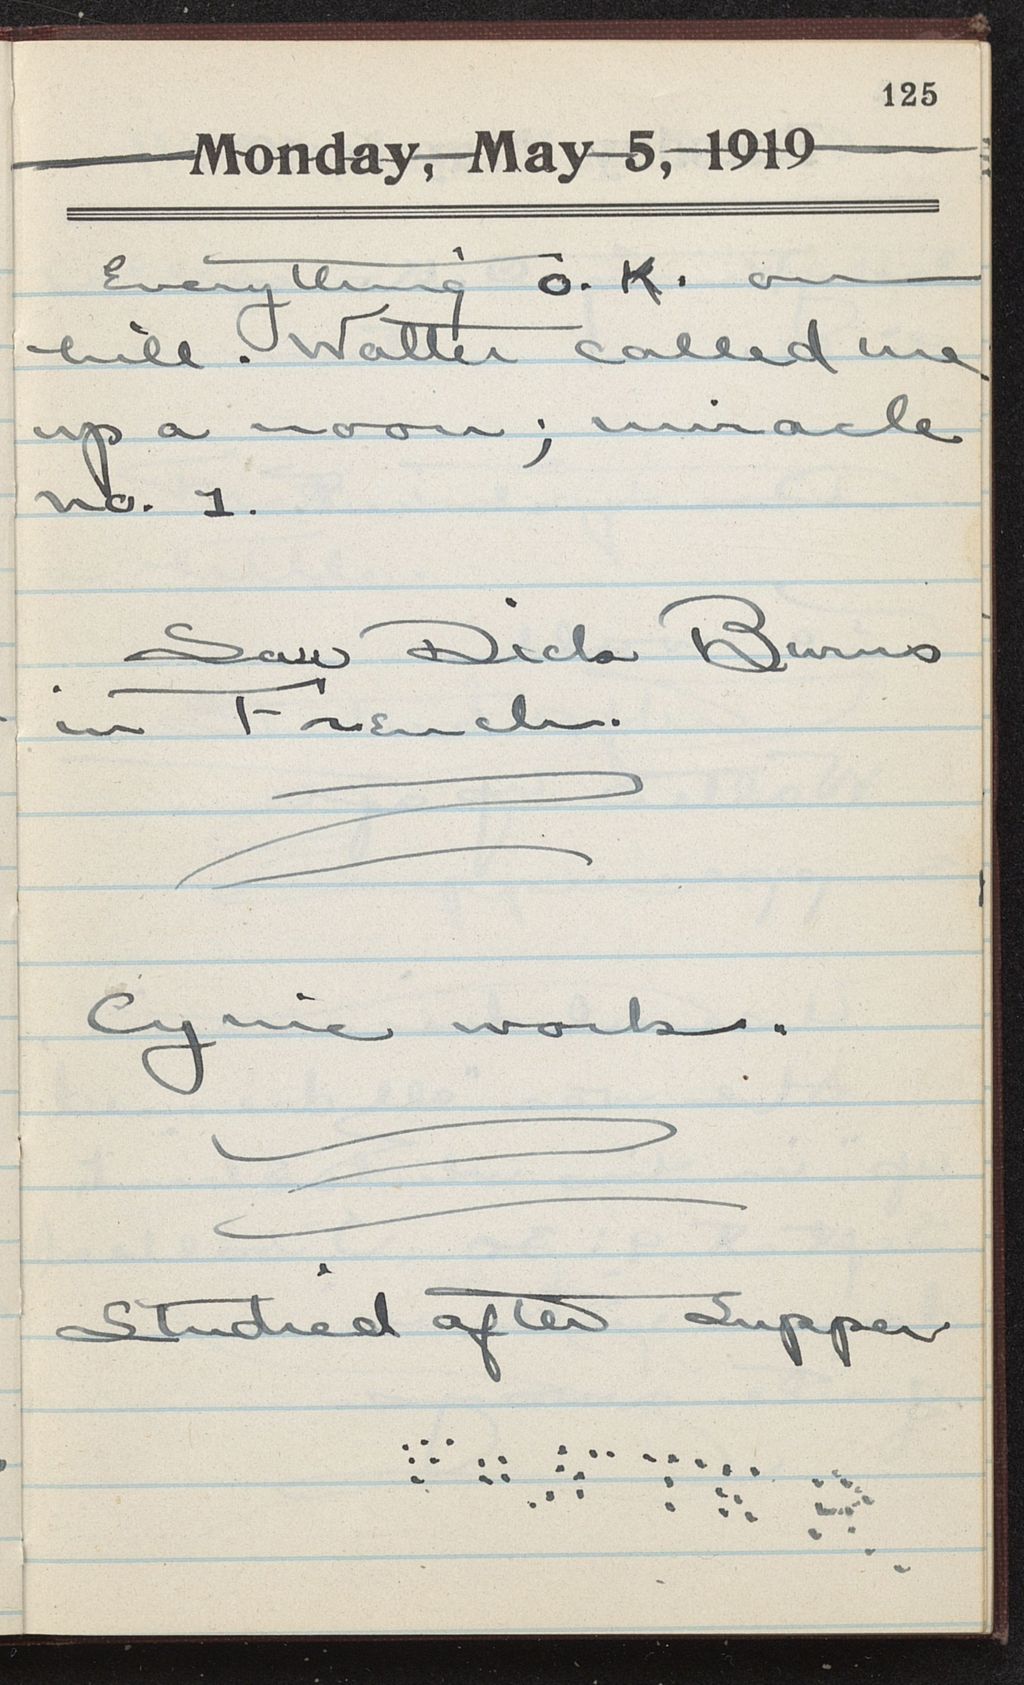 125
Monday, May 5, 1919
Everything O.K. on
hill. Walter called me
up a noon; miracle
no. 1.
Saw Dick Burns
in French.
Cynic work.
Studied after supper